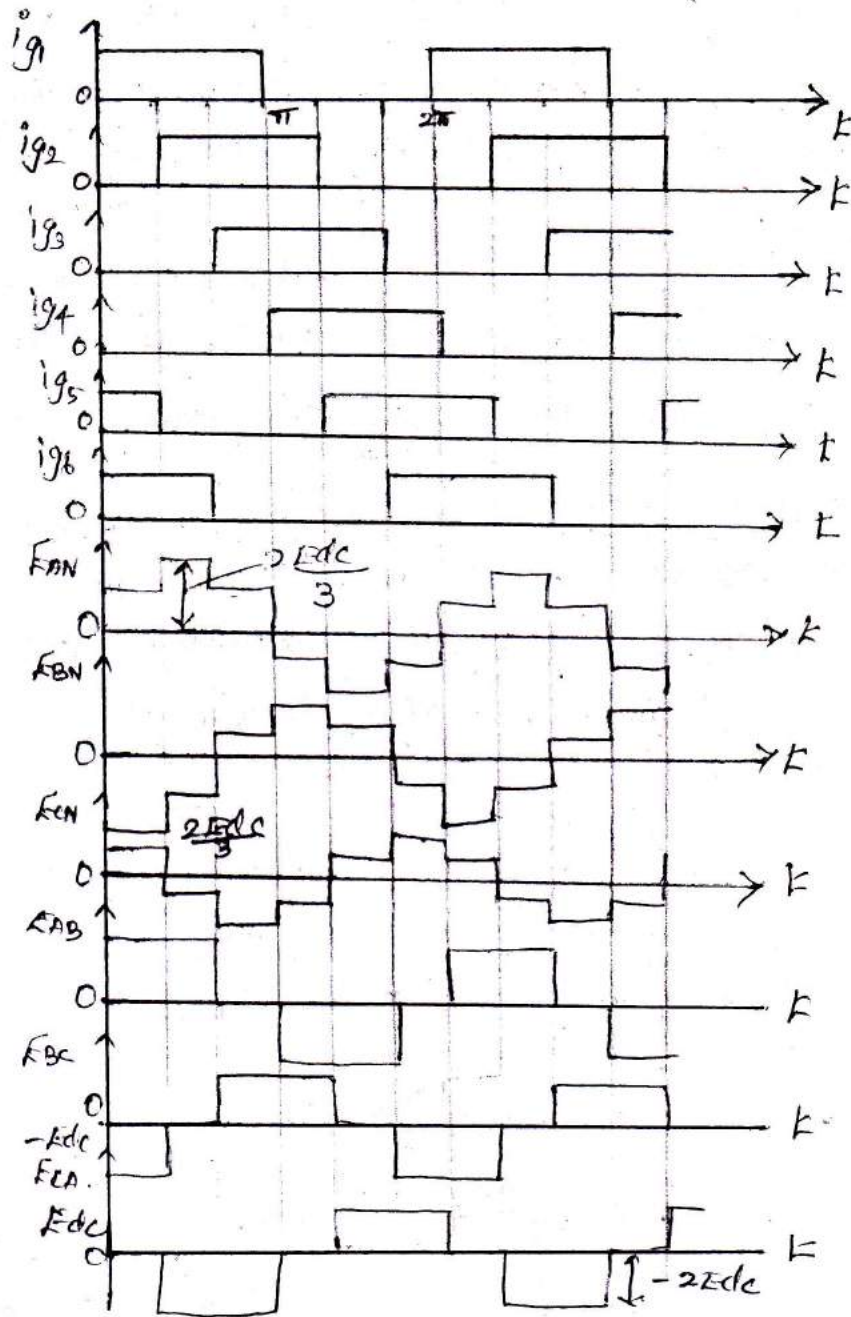 ig1
0
π 2π
t
ig2
0
t
ig3
0
t
ig4
0
t
ig5
0
t
ig6
0
t
EAN
2Edc/3
0
t
EBN
0
t
ECN
2Edc/3
0
t
EAB
0
t
EBC
0
t
-Edc
ECA.
Edc
0
t
-2Edc